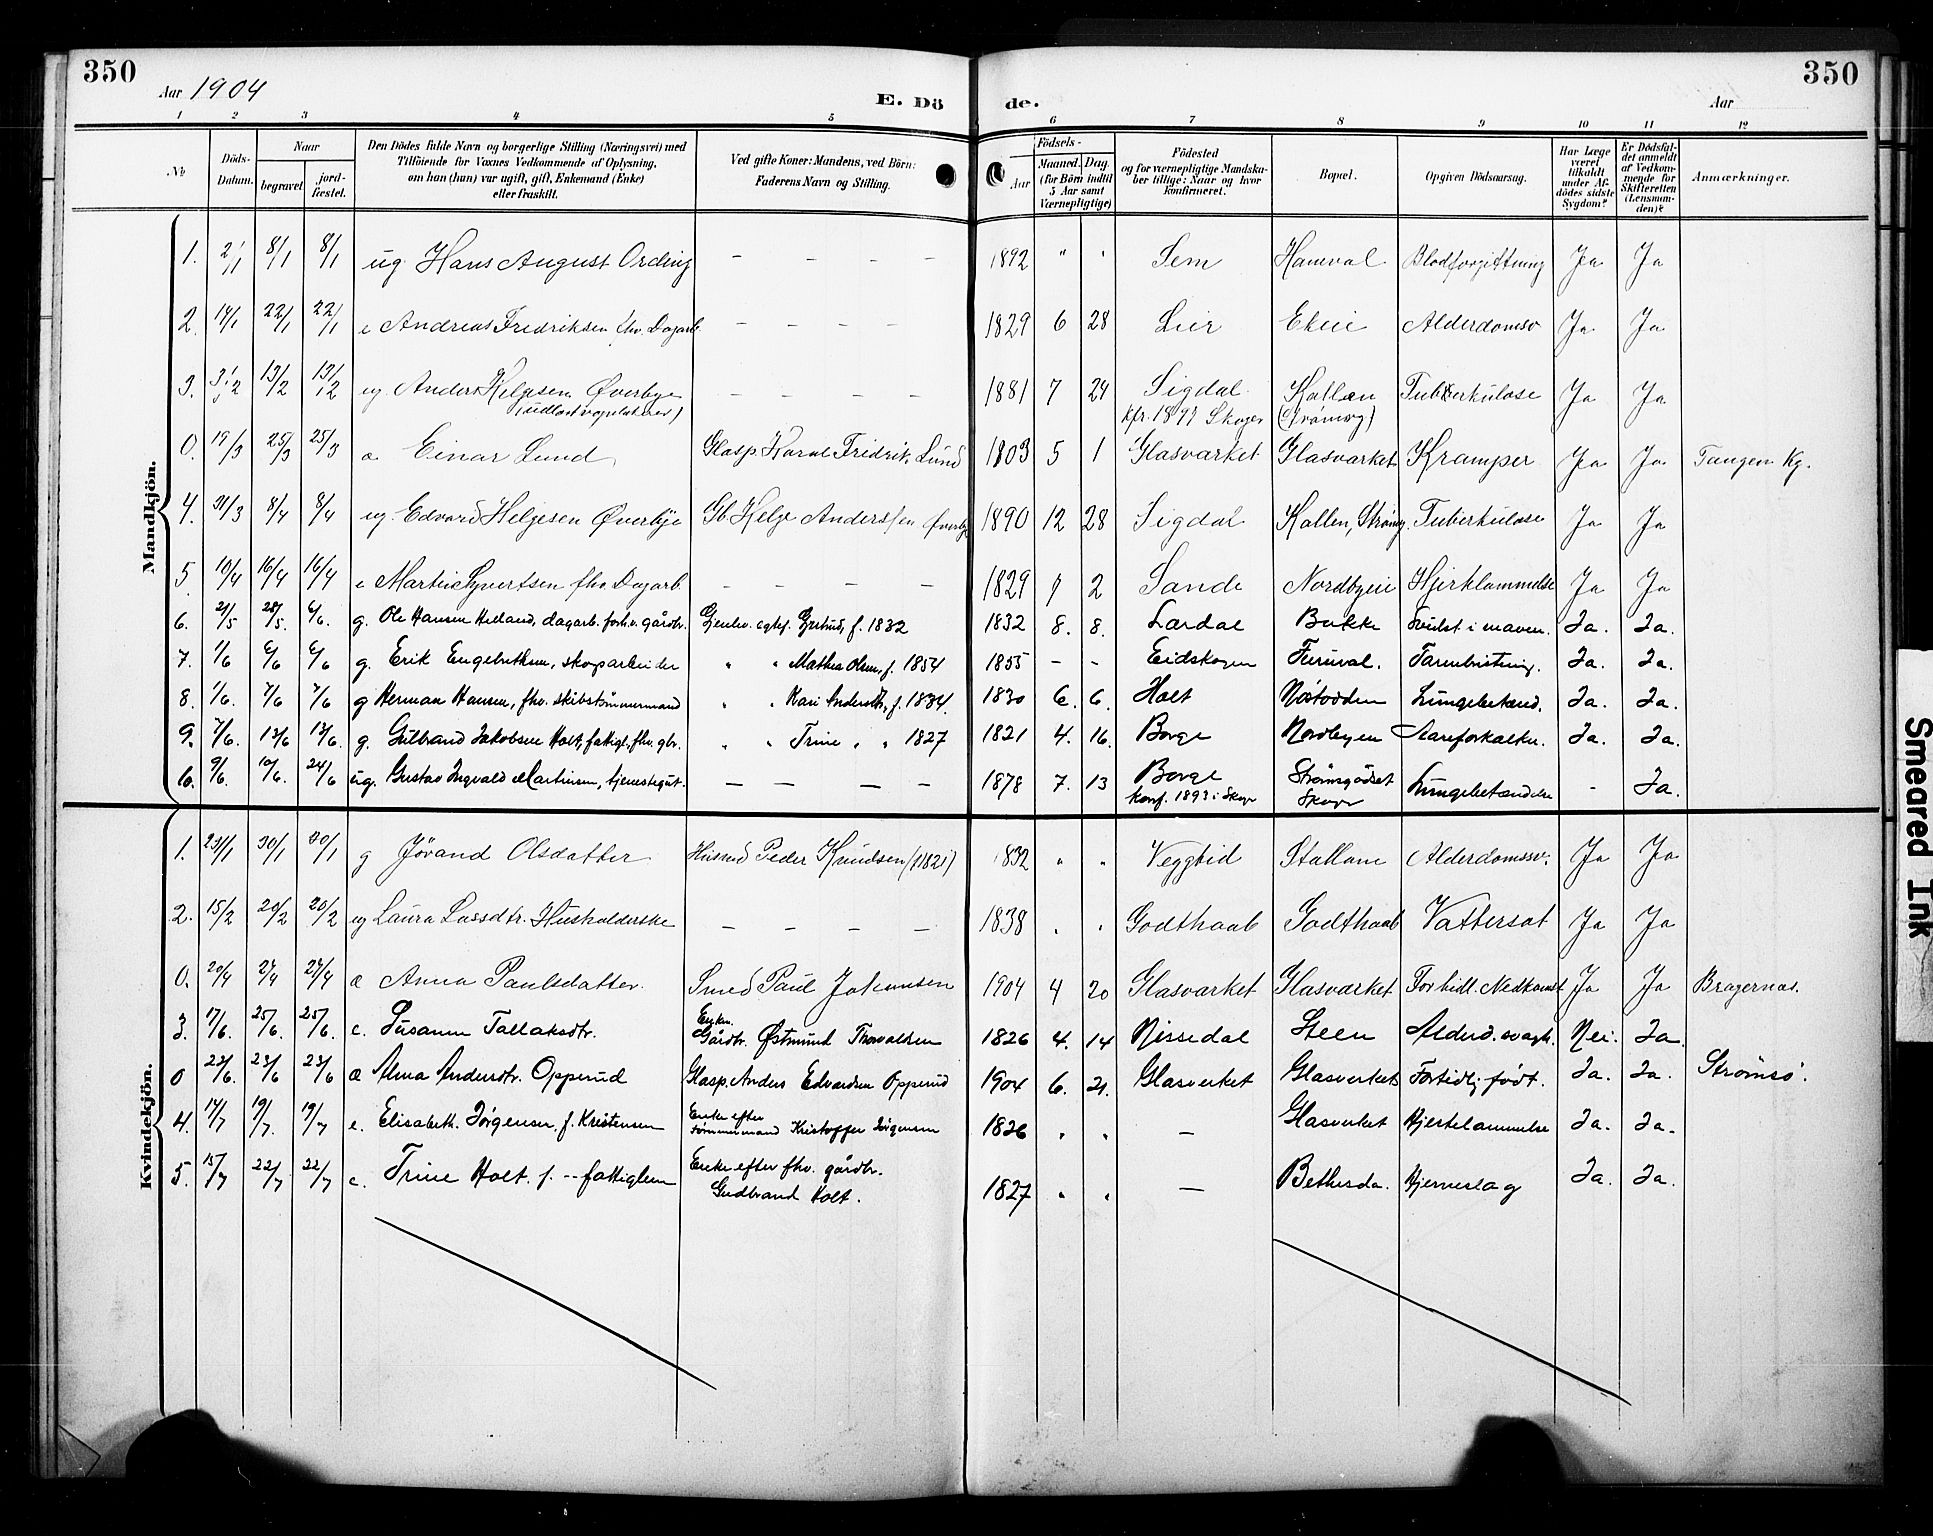 350
350
Aar 1904
E. Dö
de.
Aar
1 2 3 4 5 6 7 8 9 10 11 12
№
Döds-
Datum.
Naar
begravet
jord-
fæstet.
Den Dödes fulde Navn og borgerlige Stilling (Næringsvei) med
Tilföiende for Voxnes Vedkommende af Oplysning,
om han (hun) var ugift, gift, Enkemand (Enke)
eller fraskilt.
Ved gifte Koner: Mandens, ved Börn:
Faderens Navn og Stilling.
Födsels-
Aar
Maaned. Dag.
(for Börn indtil
5 Aar samt
Værnepligtige)
Födested
og for værnepligtige Mandska-
ber tillige: Naar og hvor
konfirmeret.
Bopæl.
Opgiven Dödsaarsag.
Har Læge
været
tilkaldt
under Af-
dödes sidste
Sygdom?
Er Dödsfal-
det anmeldt
af Vedkom-
mende for
Skifteretten
(Lensman-
den)?
Anmærkninger.
Mandkjön.
1. 2/1 8/1 8/1 ug. Hans August Ording – – – – 1892 " " Sem Hamval Blodforgiftning Ja Ja
2. 14/1 22/1 22/1 e Andreas Fredriksen fhv. Dagarb. – – – – 1829 6 28 Lier Ekeie Alderdomssv Ja Ja
3. 3/2 13/2 13/2 ug. Anders Helgesen Øverbye – – – – 1881 7 24 Sigdal Kallen Tuberkulose Ja Ja
kfr. 1897 Skoger (Strømsg)
0. 19/3 25/3 25/3 æ Einar Lund Glasp. Karal Fredrik Lund 1903 5 1 Glasværket Glasværket Kramper Ja Ja Tangen Kg.
4. 31/3 8/4 8/4 ug. Edvard Helgesen Øverbye Gb. Helge Anderssen Øverbye 1890 12 28 Sigdal Kallen, Strømsg. Tuberkulose Ja Ja
5. 10/4 16/4 16/4 e Martin Syvertsen fhv. Dagarb. – – – – 1829 7 2 Sande Nordbyeie Hjertelammelse Ja Ja
6. 21/5 28/5. 6/6. g. Ole Hansen Heland, dagarb. forhv. gårdbr. Gjenlev. egtef. Gjertrud, f. 1832 1832 8. 8. Lardal Bakke Svulst i maven. Ja. Ja.
7. 1/6 6/6 6/6 g. Erik Engebrethsen, skogsarbeider " " Mathea Olsen, f. 1854 1855 – – Eidskogen Furuval. Tarmbristning. Ja. Ja.
8. 1/6. 7/6 7/6 g Herman Hansen, fhv. skibstømmermand " " Kari Andersdtr, f. 1834. 1830 6. 6. Holt Nøstodden Lungebetænd. Ja. Ja.
9. 7/6. 13/6 13/6. g. Gulbrand Jakobsen Holt, fattigl., fhv. gbr. " " Trine " " 1827 1821 4. 16. Borge Nordbyen Aareforkalkn. Ja. Ja.
10. 9/6. 10/6. 24/6 ug. Gustav Ingvald Martinsen, tjenestegut. – – – – 1878 7. 13 Borge Strømsgodset Lungebetændelse - Ja.
konf. 1893 i Skoger Skoger
Kvindekjön.
1. 23/1 30/1 30/1 g Jörand Olsdatter Husmd Peder Knudsen (f 1821) 1832 " " Veggtid Stallane Alderdomssv. Ja Ja
2. 15/2 20/2 20/2 ug Laura Larsdtr. Husholderske – – – – 1838 " " Godthaab Godthaab Vattersot Ja Ja
0. 20/4 27/4 27/4 æ Anna Paulsdatter Smed Paul Johannsen 1904 4 20 Glasværket Glasværket For tidl. Nedkomst Ja Ja Bragernæs.
3. 17/6. 25/6. 25/6. e. Susanne Tallaksdtr. Enken. Gårdbr. Østmund Thorvaldsen 1826 4. 14 Nissedal Steen Alderd. svagh. Nei. Ja.
0 22/6. 23/6 23/6 æ Alma Andersdtr. Opperud Glasp. Anders Edvardsen Opperud 1904 6. 21. Glasverket Glasverket Fortidlig født. Ja. Ja. Strømsø.
4. 14/7 19/7. 19/7 e. Elisabeth Jörgensen, f. Kristensen Enke efter tømmermand Kristoffer Jörgensen 1826 " " – Glasverket Hjertelammelse Ja. Ja.
5. 15/7 22/7 22/7 e. Trine Holt f. -- fattiglem Enke efter fhv. gårdbr. Gudbrand Holt. 1827 " " – Bethesda. Hjerneslag Ja. Ja.
Smeared Ink